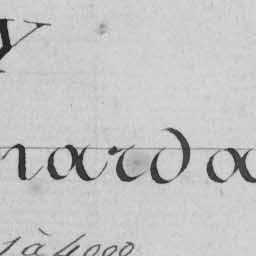 y
narda
1 à 4000